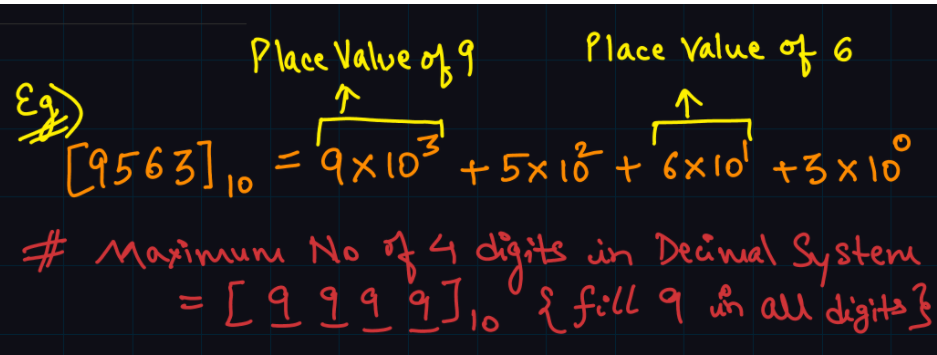 Place Value of 9 Place Value of 6
Eg)
[9563]₁₀ = 9×10³ + 5×10² + 6×10¹ + 3×10⁰
# Maximum No of 4 digits in Decimal System
= [9 9 9 9]₁₀ {fill 9 in all digits}